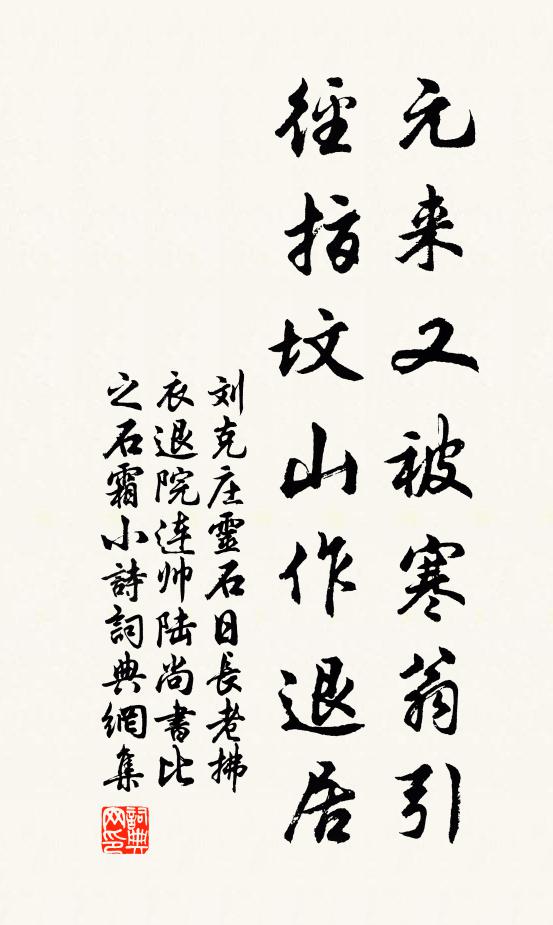 元来又被寒翁引
徑指坟山作退居
刘克庄靈石日長老拂
衣退院连帅陆尚書比
之石霜小詩詞典網集
詞典网印